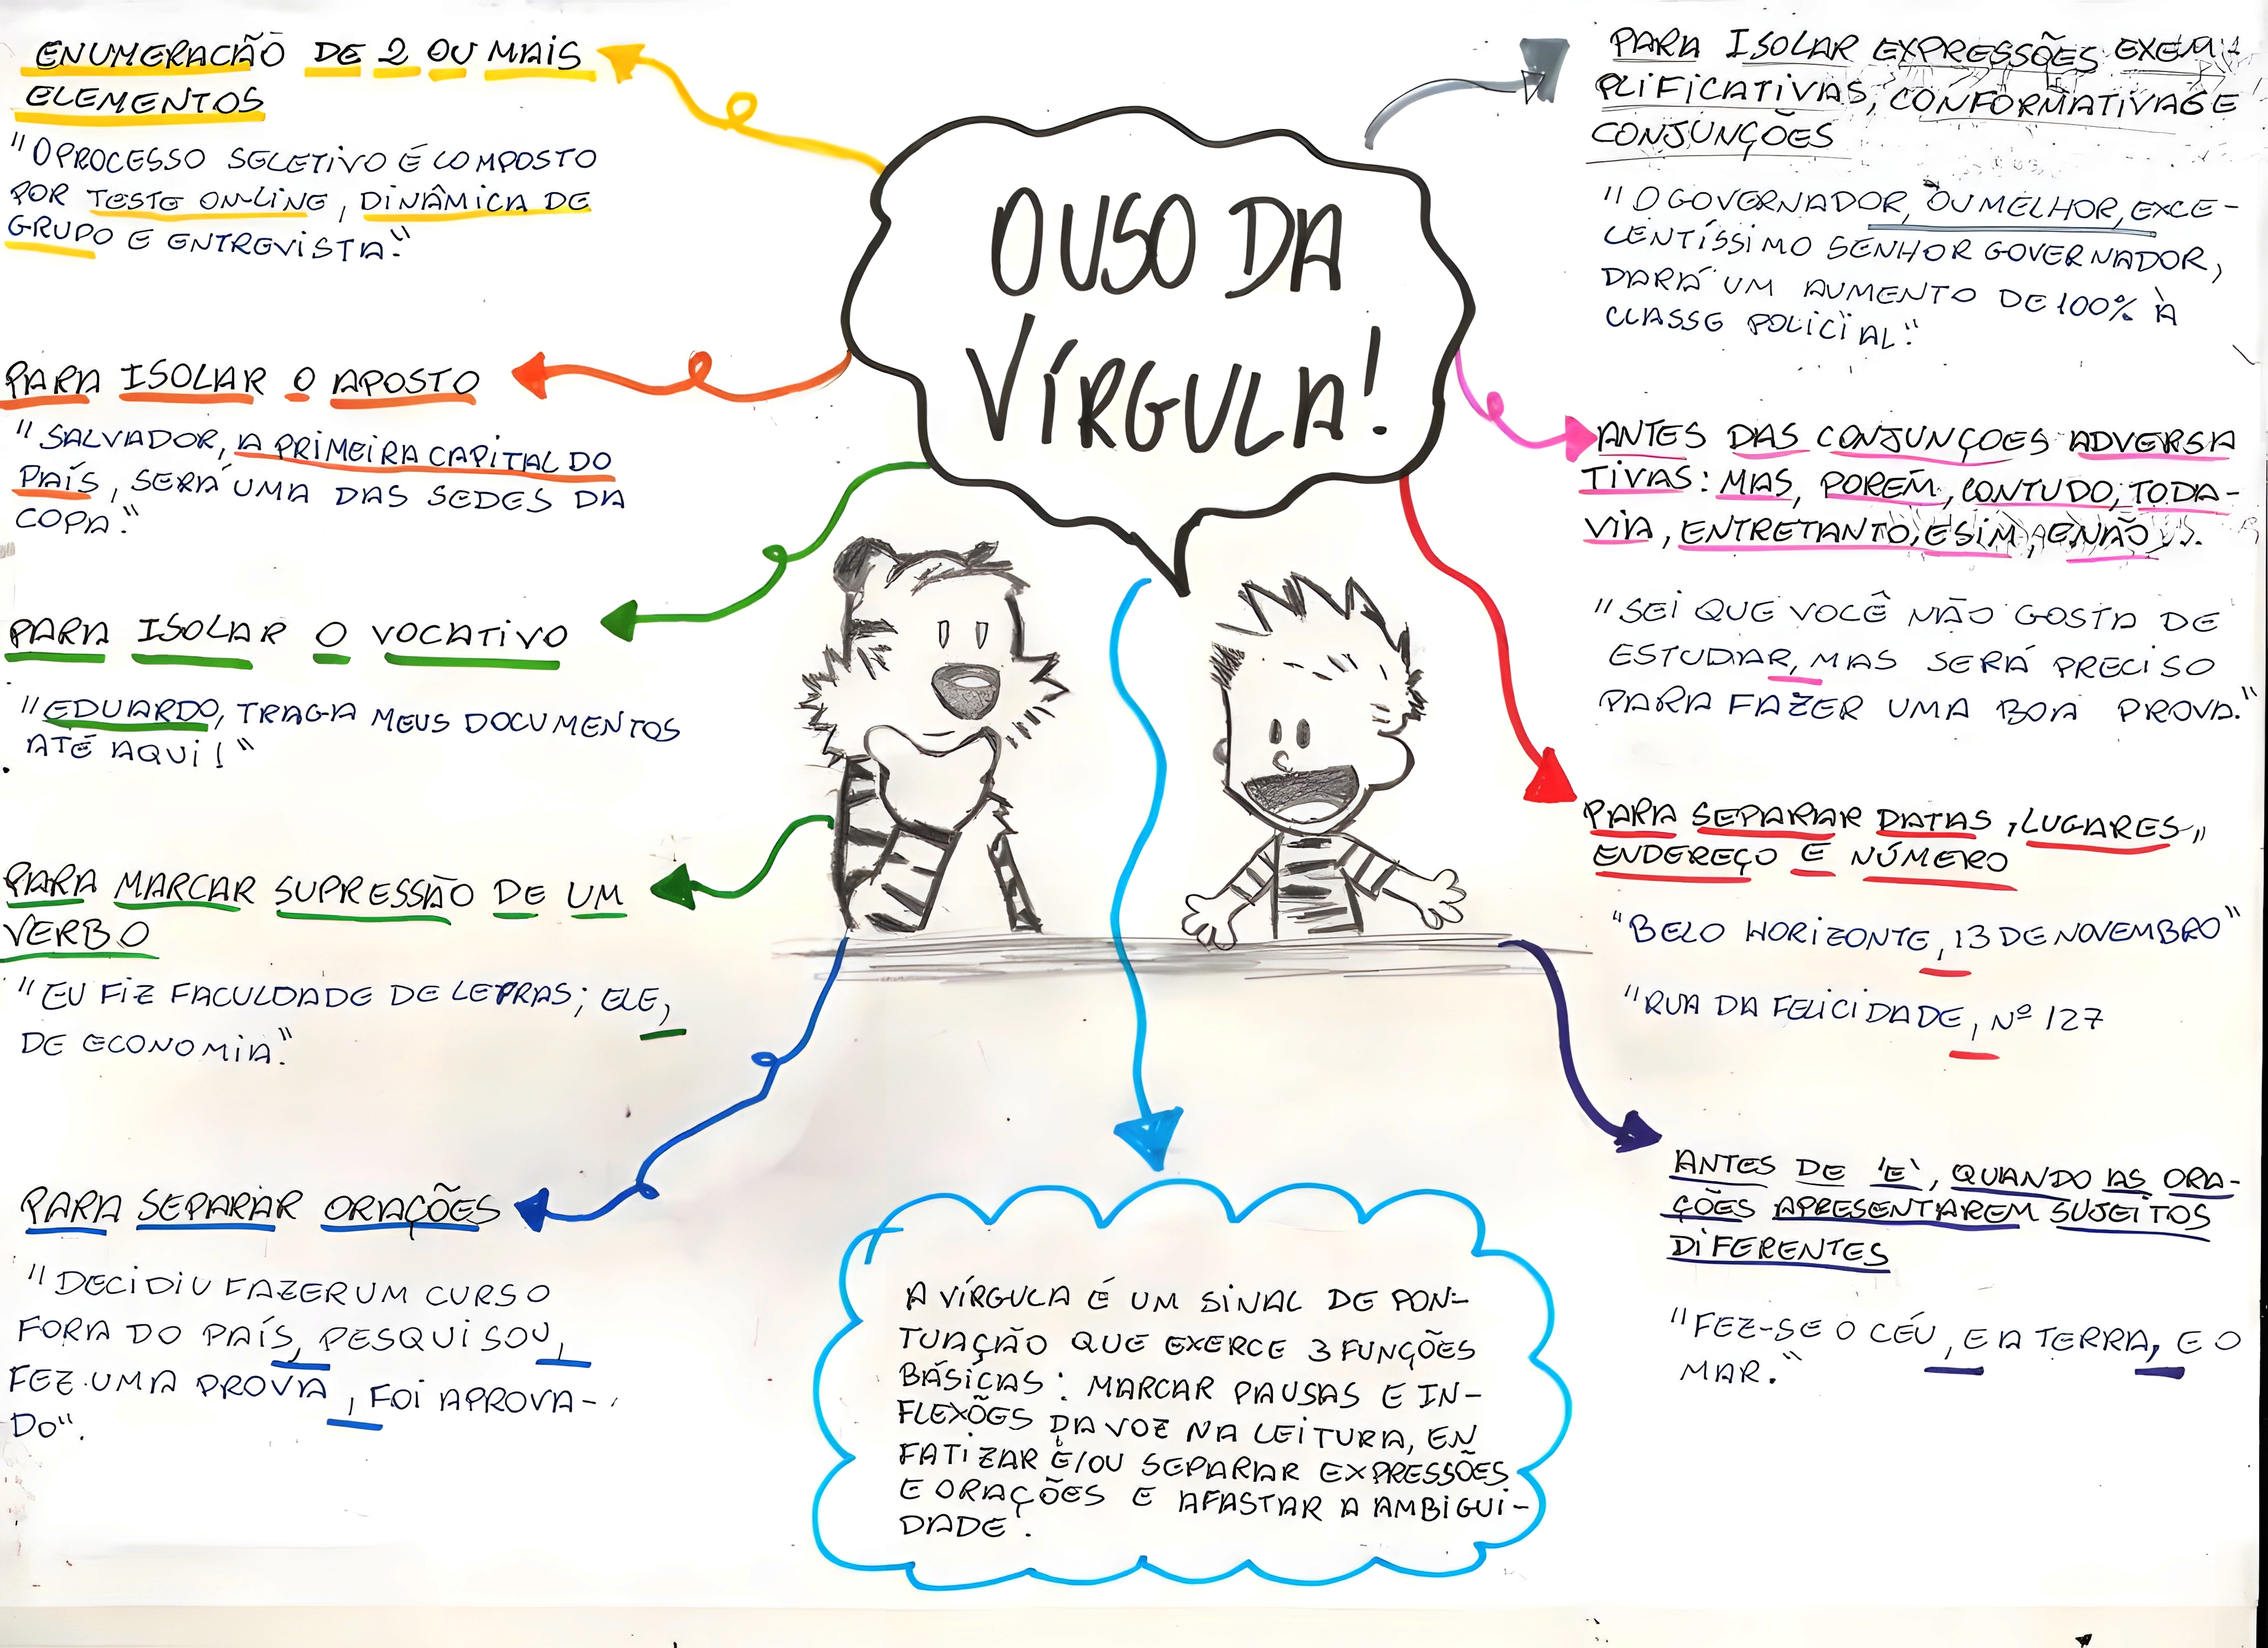 O USO DA
VÍRGULA!
ENUMERACÃO DE 2 OU MAIS
ELEMENTOS
"O PROCESSO SELETIVO É COMPOSTO
POR TESTE ON-LINE, DINÂMICA DE
GRUPO E ENTREVISTA."
PARA ISOLAR O APOSTO
"SALVADOR, A PRIMEIRA CAPITAL DO
PAÍS, SERÁ UMA DAS SEDES DA
COPA."
PARA ISOLAR O VOCATIVO
"EDUARDO, TRAGA MEUS DOCUMENTOS
ATÉ AQUI!"
PARA MARCAR SUPRESSÃO DE UM
VERBO
"EU FIZ FACULDADE DE LETRAS; ELE,
DE ECONOMIA."
PARA SEPARAR ORAÇÕES
"DECIDIU FAZER UM CURSO
FORA DO PAÍS, PESQUISOU,
FEZ UMA PROVA, FOI APROVA-
DO".
A VÍRGULA É UM SINAL DE PON-
TUAÇÃO QUE EXERCE 3 FUNÇÕES
BÁSICAS: MARCAR PAUSAS E IN-
FLEXÕES DA VOZ NA LEITURA, EN
FATIZAR E/OU SEPARAR EXPRESSÕES
E ORAÇÕES E AFASTAR A AMBIGUI-
DADE.
PARA ISOLAR EXPRESSÕES EXEM
PLIFICATIVAS, CONFORMATIVAS E
CONJUNÇÕES
"O GOVERNADOR, OU MELHOR, EXCE-
LENTÍSSIMO SENHOR GOVERNADOR,
DARÁ UM AUMENTO DE 100% À
CLASSE POLICIAL."
ANTES DAS CONJUNÇOES ADVERSA
TIVAS: MAS, PORÉM, CONTUDO, TODA-
VIA, ENTRETANTO, E SIM, E NÃO...
"SEI QUE VOCÊ NÃO GOSTA DE
ESTUDAR, MAS SERÁ PRECISO
PARA FAZER UMA BOA PROVA."
PARA SEPARAR DATAS, LUGARES,
ENDEREÇO E NÚMERO
"BELO HORIZONTE, 13 DE NOVEMBRO"
"RUA DA FELICIDADE, Nº 127
ANTES DE 'E', QUANDO AS ORA-
ÇÕES APRESENTAREM SUJEITOS
DIFERENTES
"FEZ-SE O CÉU, E A TERRA, E O
MAR."